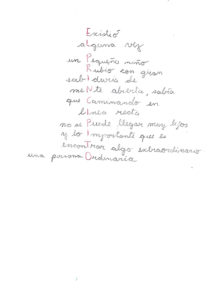 Existió
alguna vez
un Pequeño niño
Rubio con gran
sabIduría de
meNte abierta, sabía
que Caminando en
línea recta
no se Puede llegar muy lejos
y lo Importante que es
enconTrar algo extraordinario
una persona Ordinaria